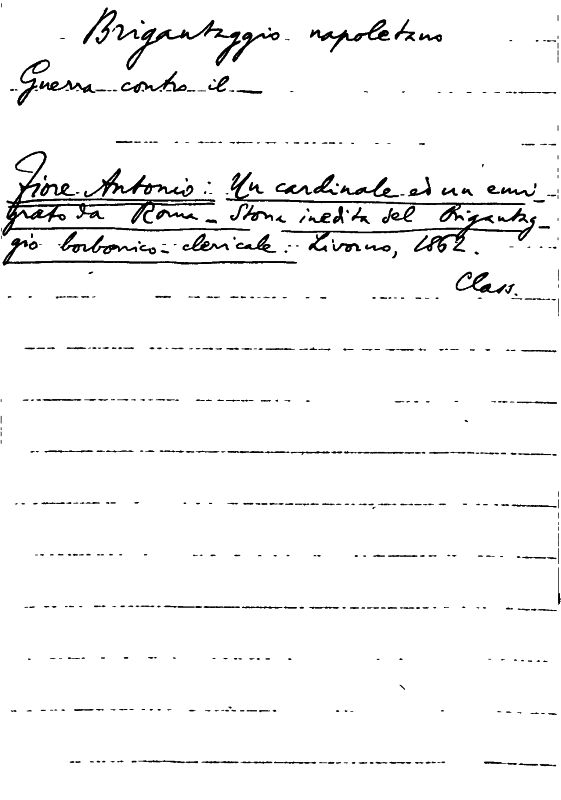 Brigantaggio napoletano
Guerra contro il —
Fiore Antonio: Un cardinale ed un emi-
grato da Roma - Storia inedita del Brigantag-
gio borbonico-clericale. Livorno, 1862.
Class.